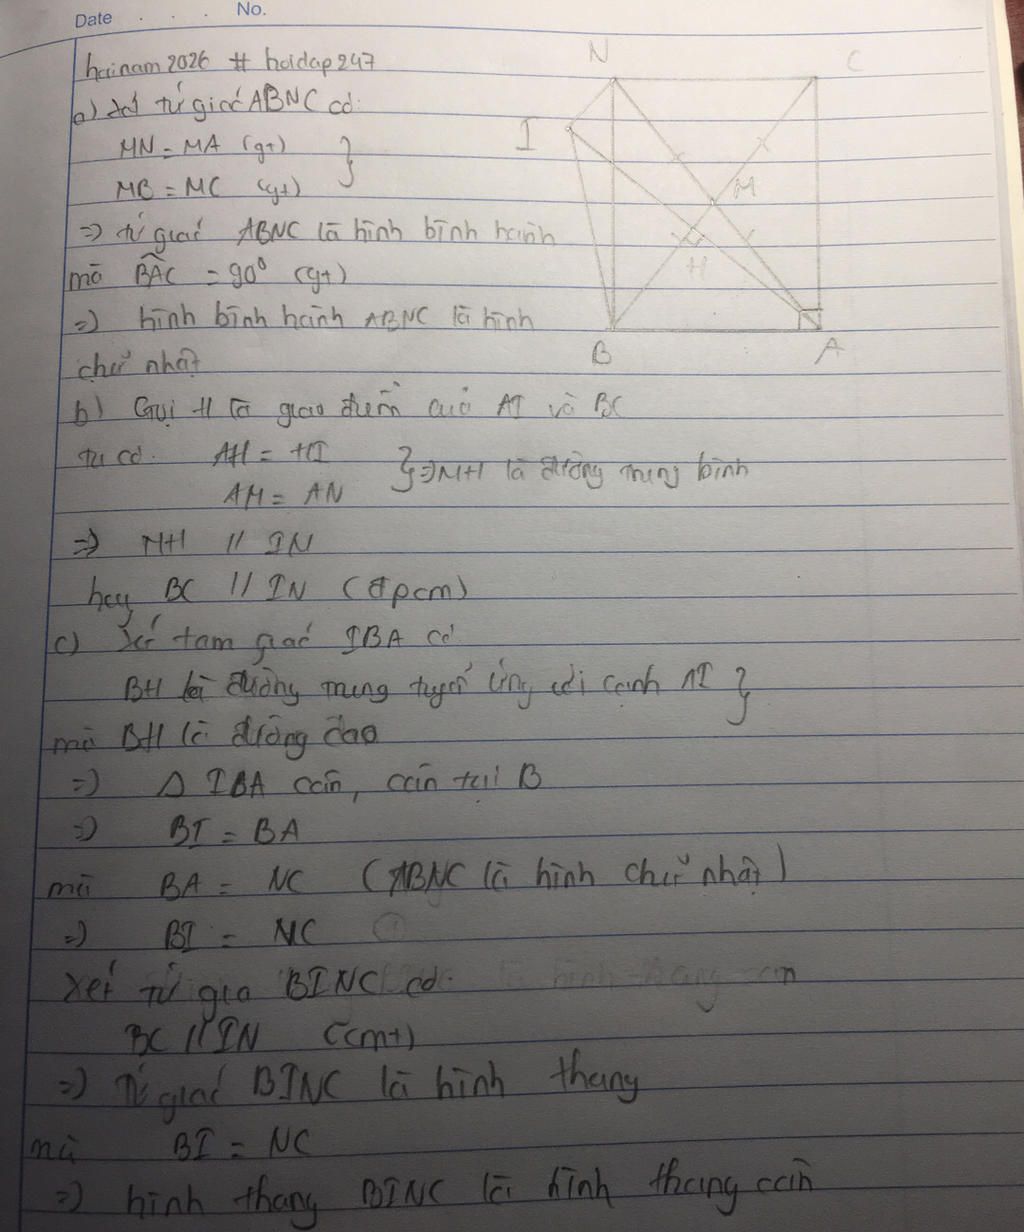 Date . . . No.
hainam2026 # hoidap247
a) Xét tứ giác ABNC có:
MN = MA (gt) }
MB = MC (gt)
=> tứ giác ABNC là hình bình hành
mà BAC = 90° (gt)
=> hình bình hành ABNC là hình
chữ nhật
b) Gọi H là giao điểm của AI và BC
ta có: AH = HI
AM = AN } => MH là đường trung bình
=> MH // IN
hay BC // IN (đpcm)
c) Xét tam giác IBA có
BH là đường trung tuyến ứng với cạnh AI }
mà BH là đường cao
=> Δ IBA cân, cân tại B
=> BI = BA
mà BA = NC (ABNC là hình chữ nhật)
=> BI = NC ①
Xét tứ gia BINC có:
BC // IN (cmt)
=> Tứ giác BINC là hình thang
mà BI = NC
=> hình thang BINC là hình thang cân
N
C
I
M
H
B
A